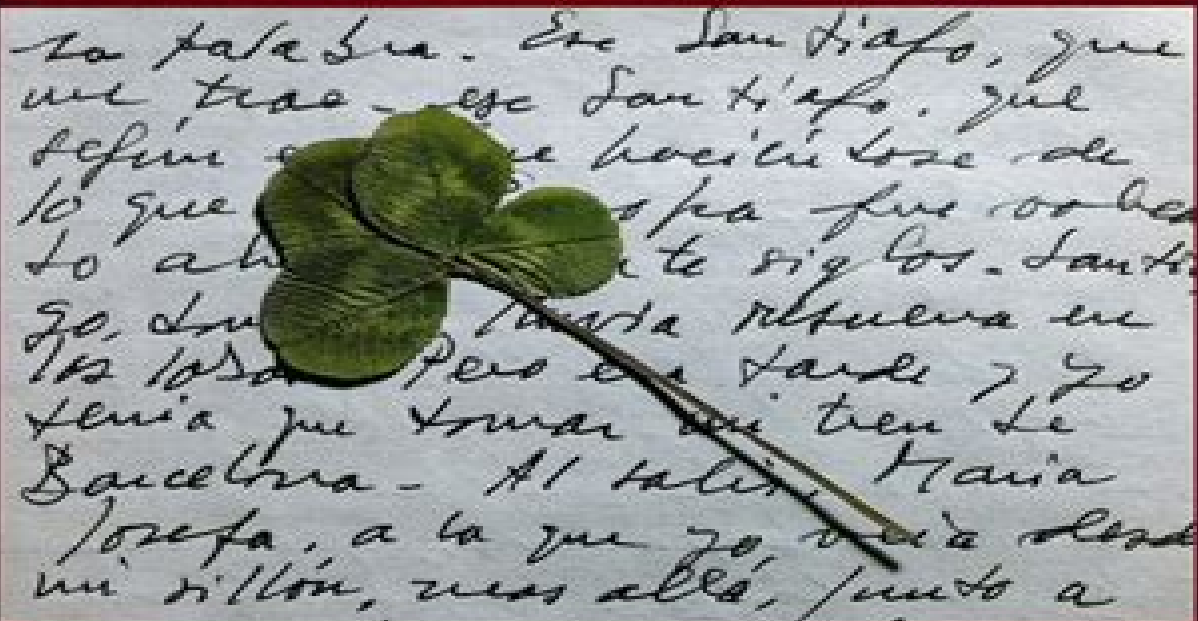 la palabra. Ese Santiago, que
me trae - ese Santiago, que
según haciéndose de
lo que fue
to siglos. Santia
go, lluvia resuena en
las losas Pero era tarde y yo
tenía que tomar mi tren de
Barcelona - Al salir, María
Josefa, a la que yo, veía desde
mi sillón, mas allá, junto a